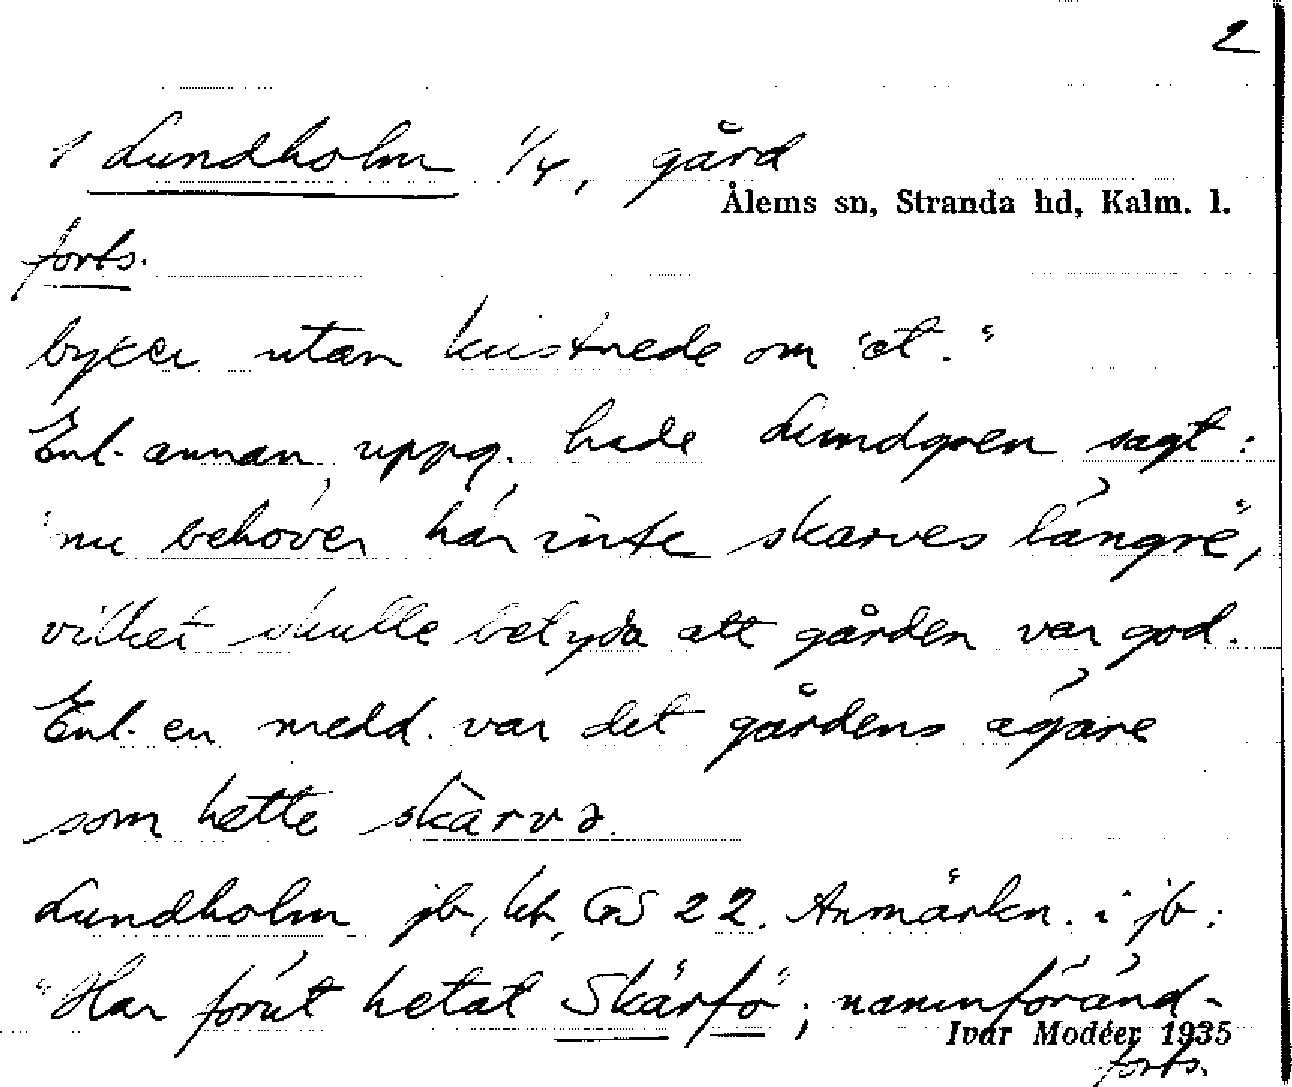 2
1 Lundholm 1/4, gård
Ålems sn, Stranda hd, Kalm. l.
forts.
bykee utan kristnede om 'et."
Enl. annan uppg. hade Lundgren sagt:
"nu behöver här inte skarves längre",
vilket skulle betyda att gården var god.
Enl. en medd. var det gårdens ägare
som hette skàrvə.
Lundholm jb, kb, GS 22. Anmärkn. i jb:
"Har förut hetat Skärfö"; namnföränd-
Ivar Modéer 1935
forts.